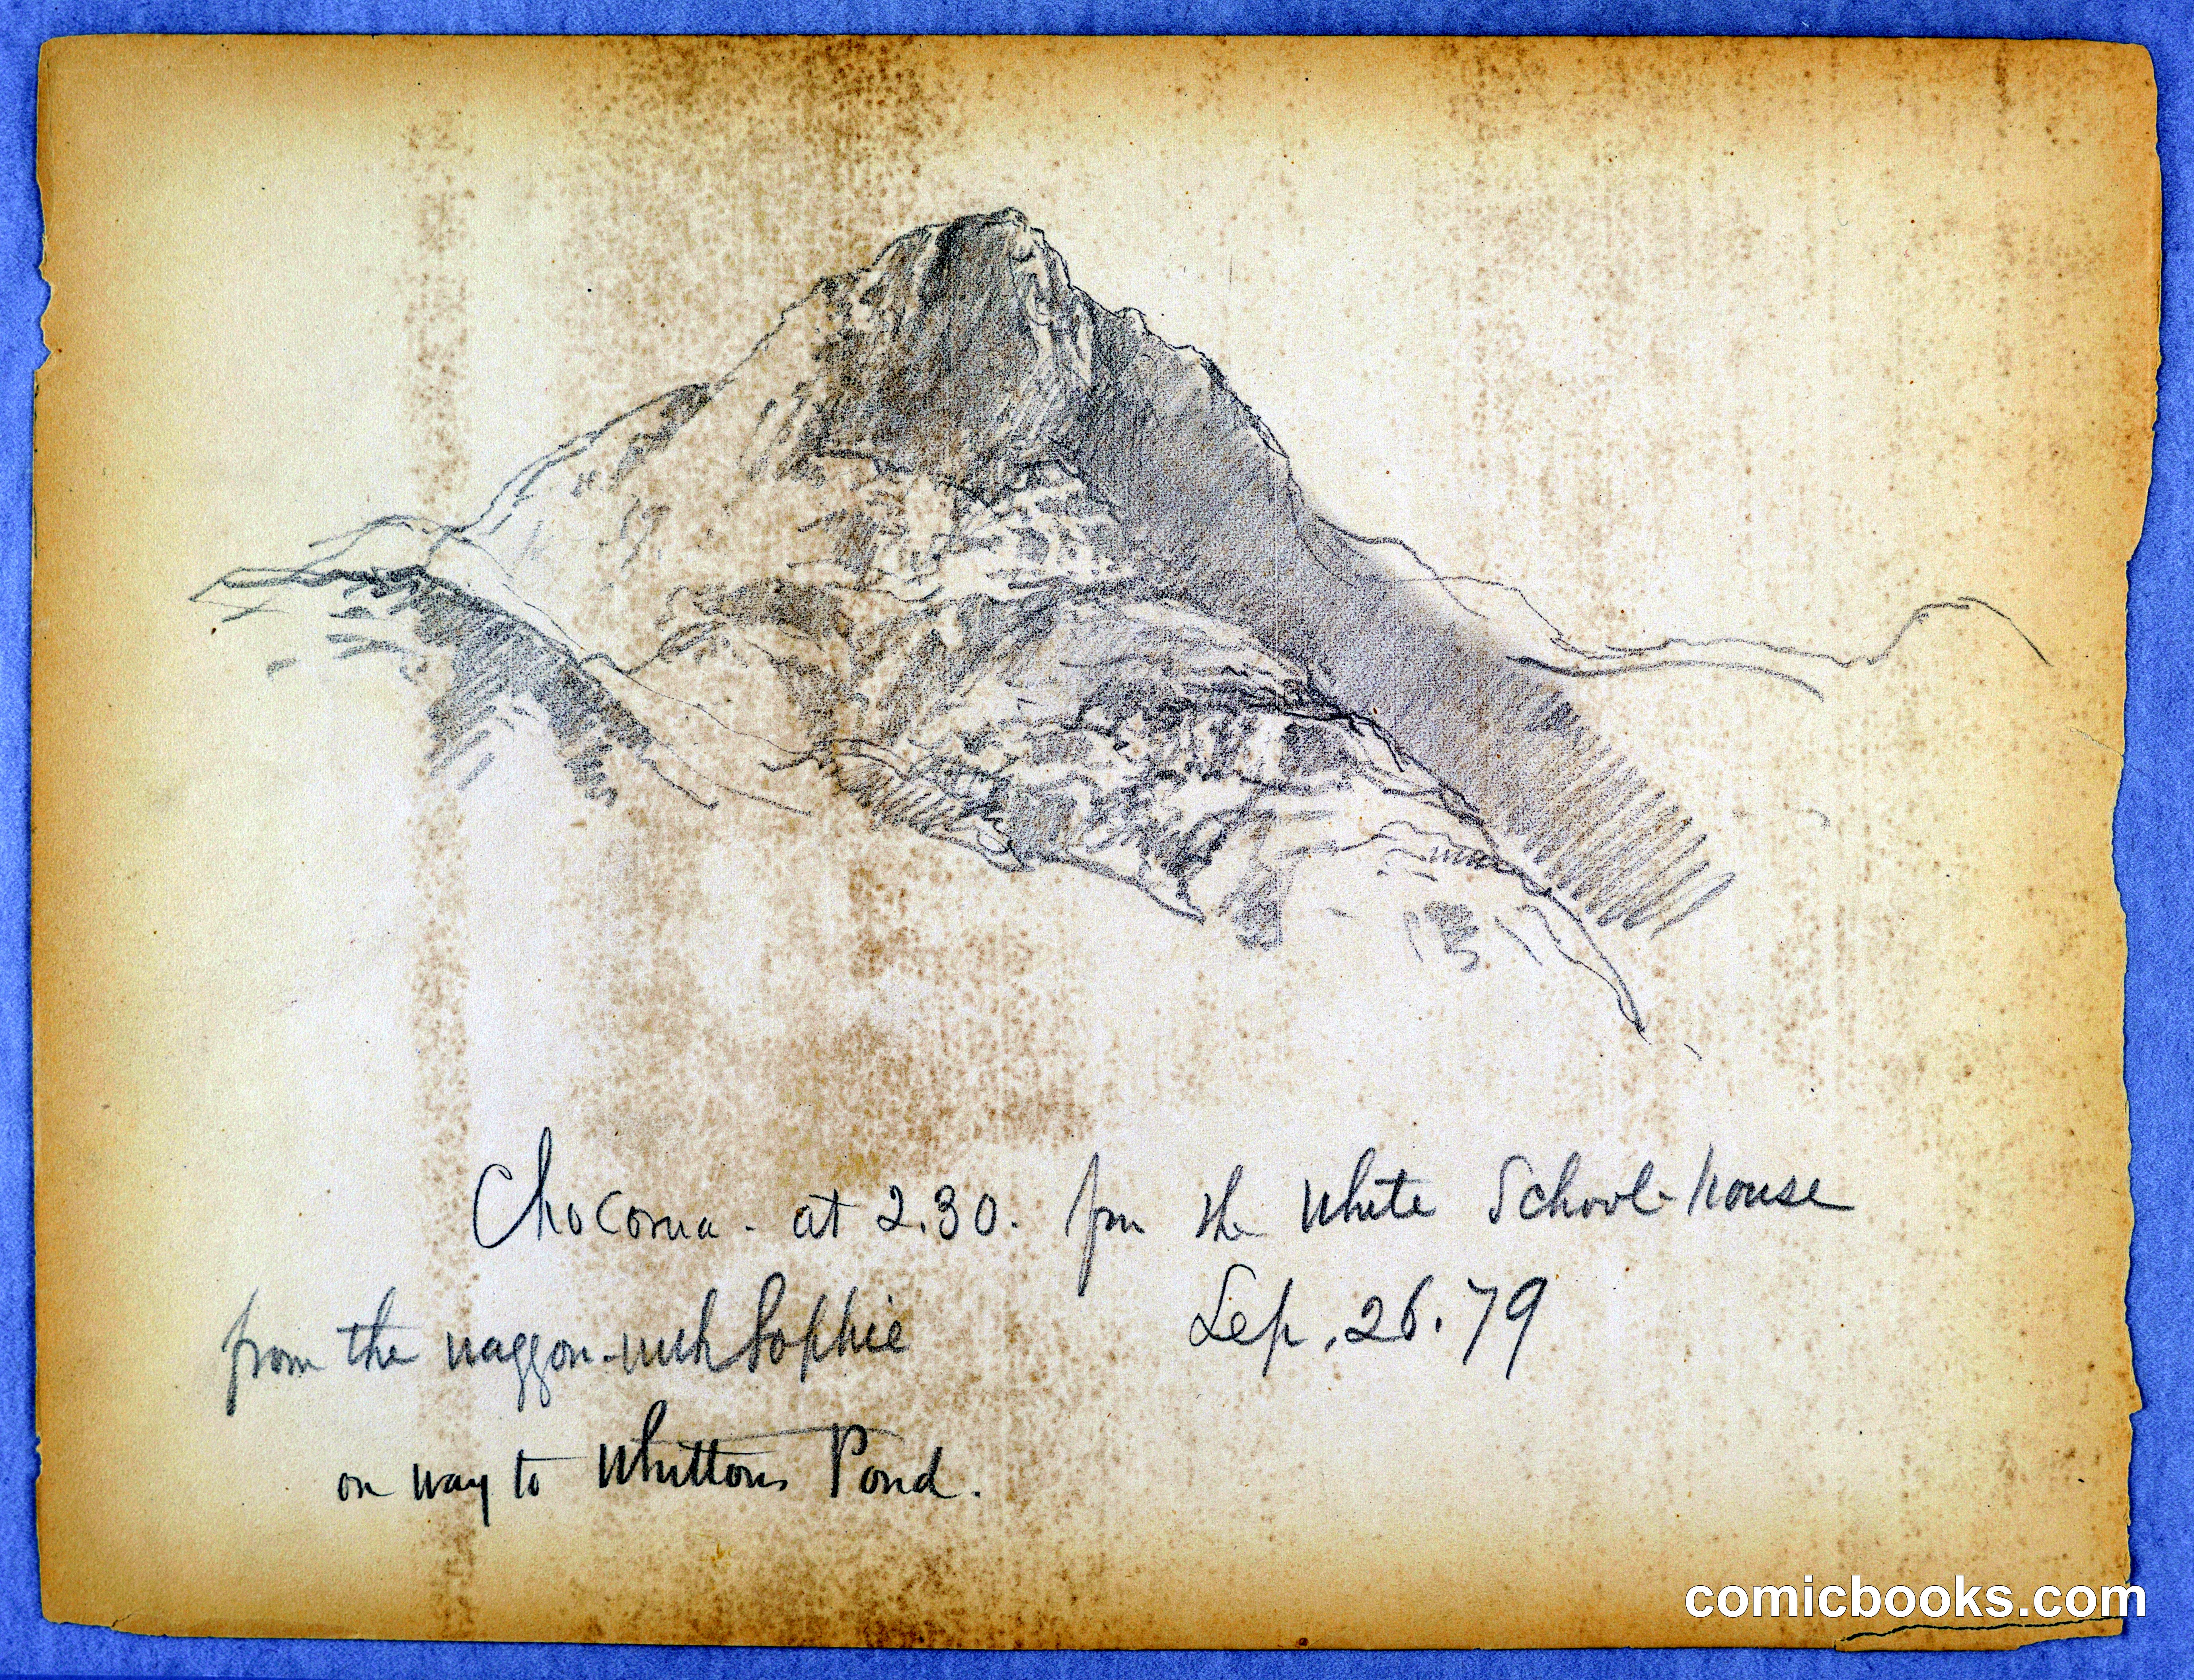 Chocorua - at 2.30. fm the White School-house
from the waggon - with Sophie Sep. 26. 79
on way to Whittons Pond.
comicbooks.com